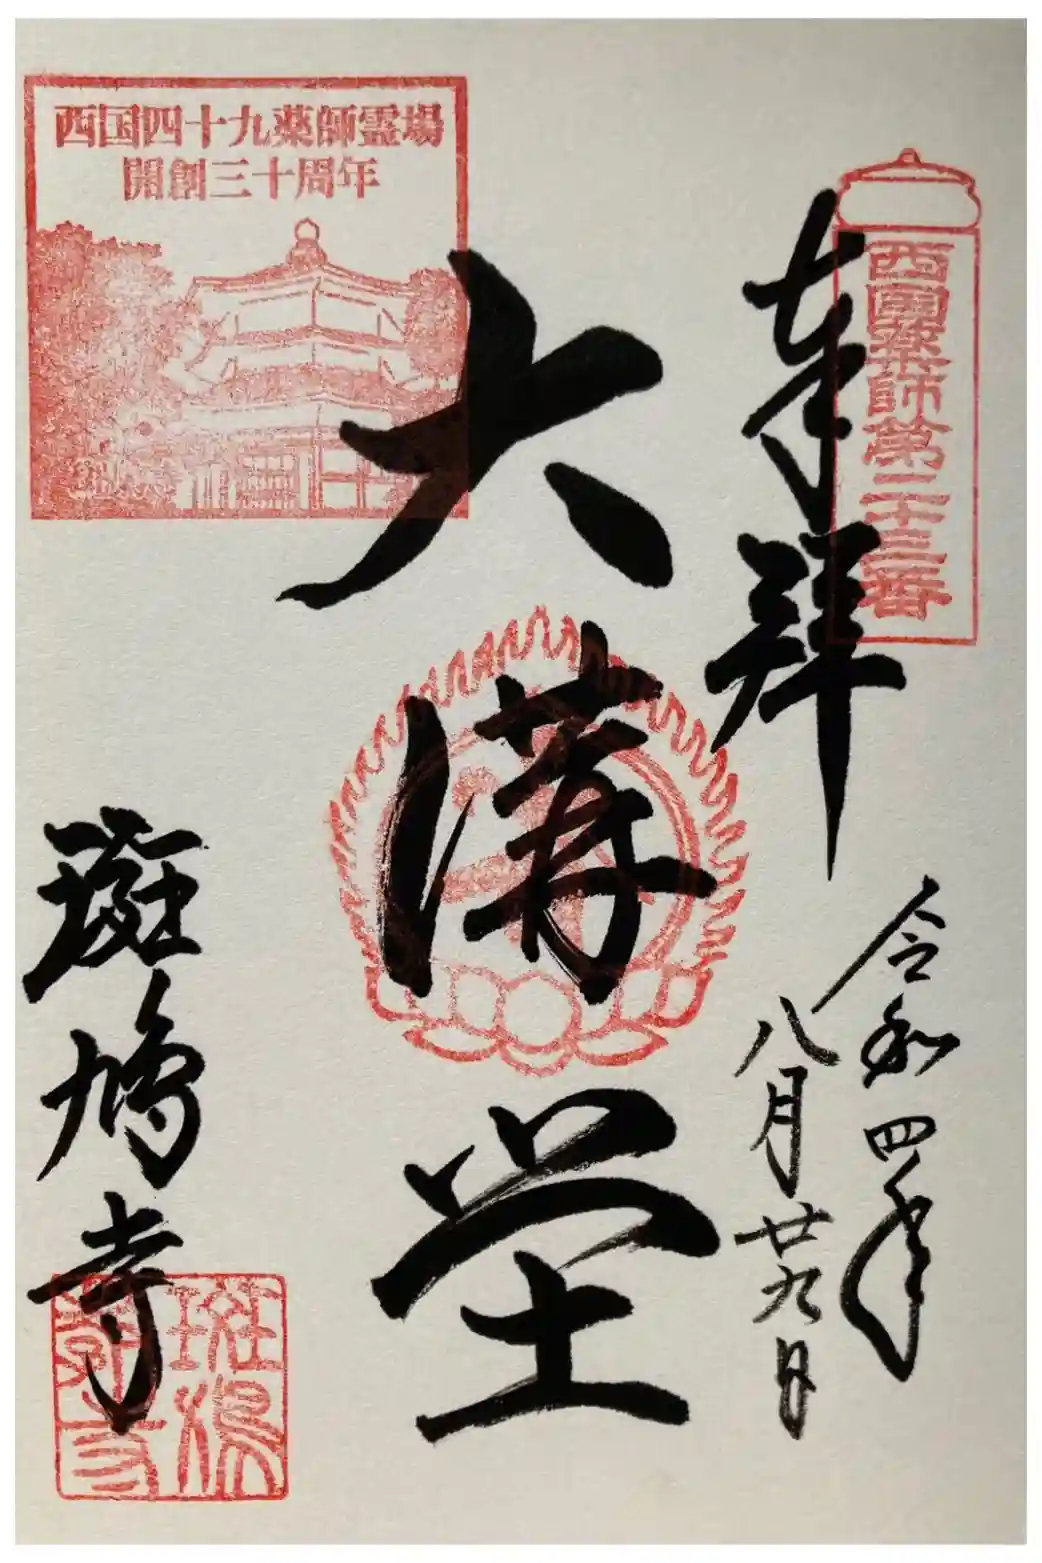 奉拝
西國薬師第二十三番
令和四年
八月廿九日
大講堂
西国四十九薬師霊場
開創三十周年
斑鳩寺